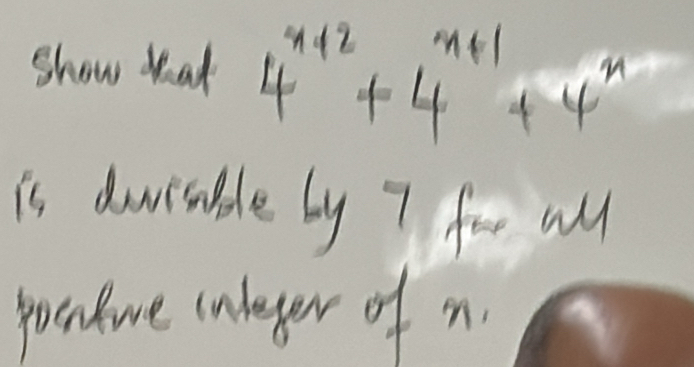 Show that 4^{n+2} + 4^{n+1} + 4^n
is divisible by 7 for all
positive integer of n.